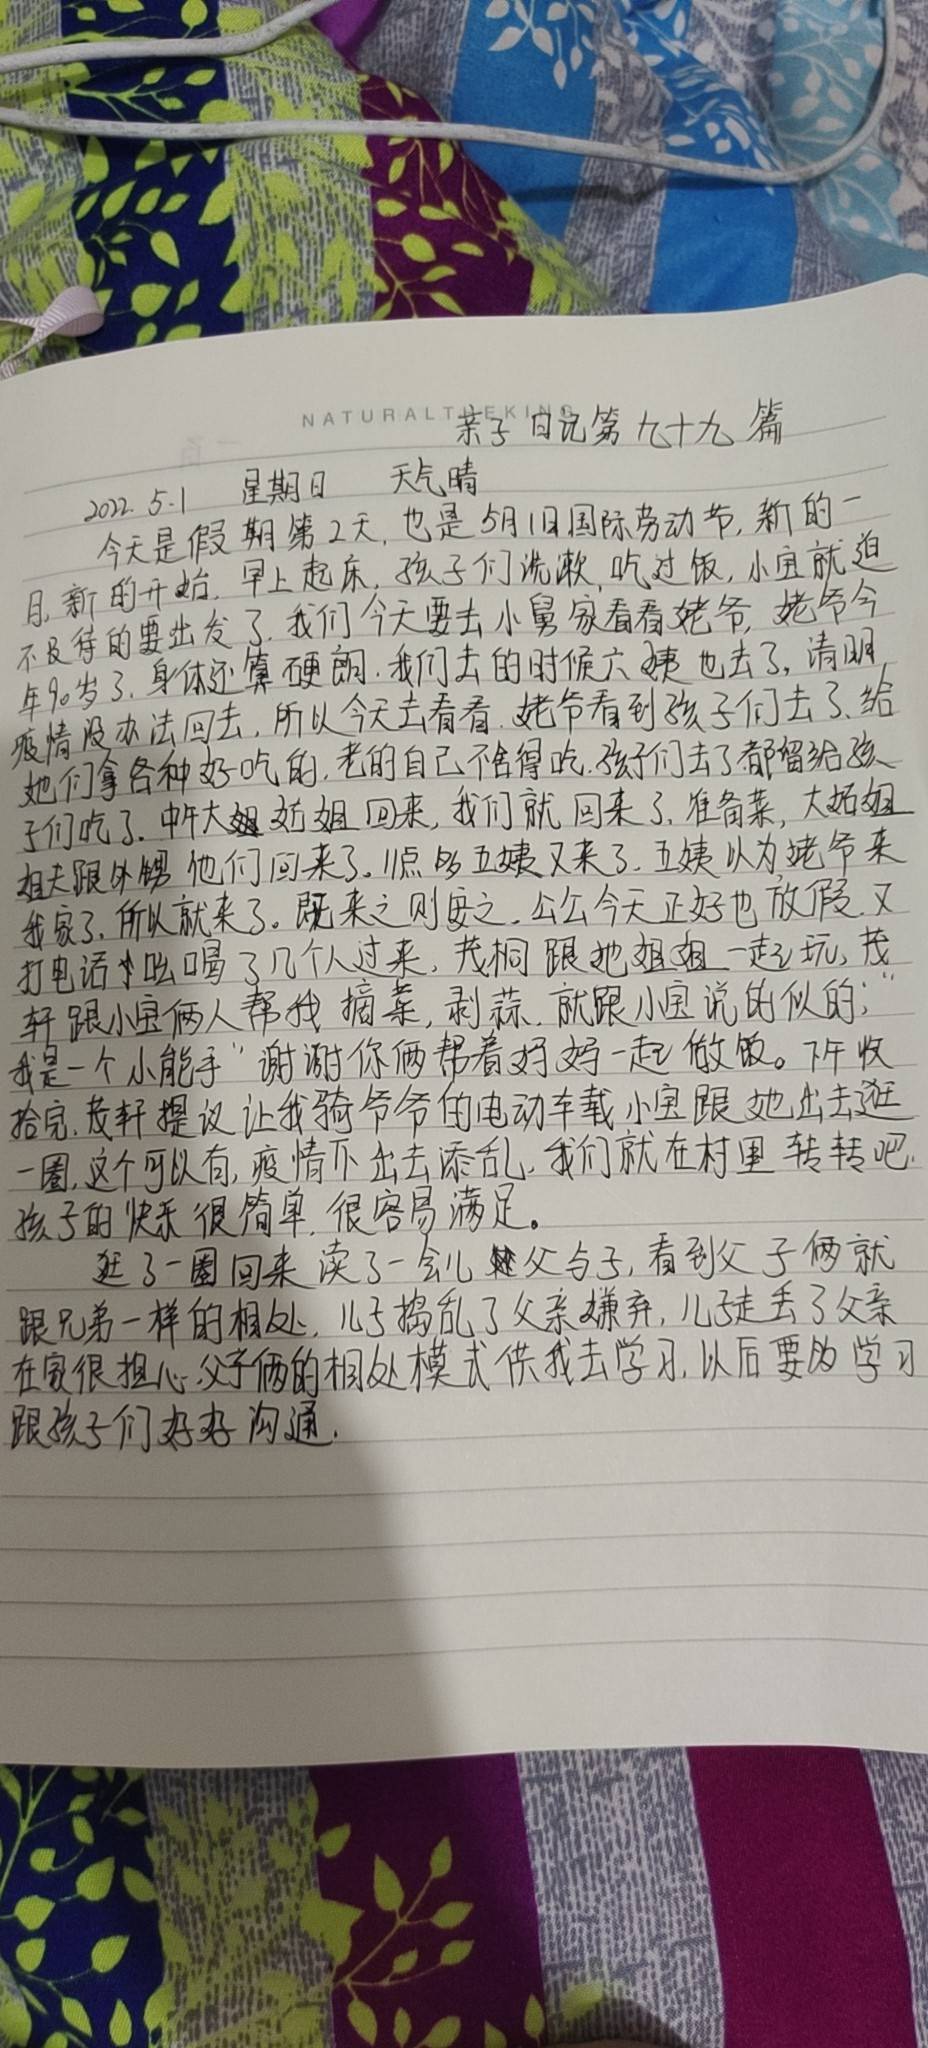 NATURALTHEKING
亲子日记第九十九篇
2022.5.1 星期日 天气晴
今天是假期第2天,也是5月1日国际劳动节,新的一
月,新的开始.早上起床,孩子们洗漱,吃过饭,小宝就迫
不及待的要出发了.我们今天要去小舅家看看姥爷,姥爷今
年90岁了.身体还算硬朗.我们去的时候六姨也去了,清明
疫情没办法回去,所以今天去看看.姥爷看到孩子们去了、给
她们拿各种好吃的,老的自己不舍得吃.孩子们去了都留给孩
子们吃了.中午大姑姐回来,我们就回来了.准备菜,大姑姐
姐夫跟外甥他们回来了。11点多五姨又来了.五姨以为姥爷来
我家了,所以就来了。既来之则安之.公公今天正好也放假.又
打电话吆喝了几个人过来,茂桐跟她姐姐一起玩,茂
轩跟小宝俩人帮我摘菜,剥蒜.就跟小宝说的似的:"
我是一个小能手"谢谢你俩帮着妈妈一起做饭。下午收
拾完.茂轩提议让我骑爷爷的电动车载小宝跟她出去逛
一圈,这个可以有,疫情下出去添乱,我们就在村里转转吧.
孩子的快乐很简单.很容易满足。
逛了一圈回来读了一会儿父与子,看到父子俩就
跟兄弟一样的相处,儿子捣乱了父亲嫌弃,儿子走丢了父亲
在家很担心.父子俩的相处模式供我去学习,以后要多学习
跟孩子们好好沟通.